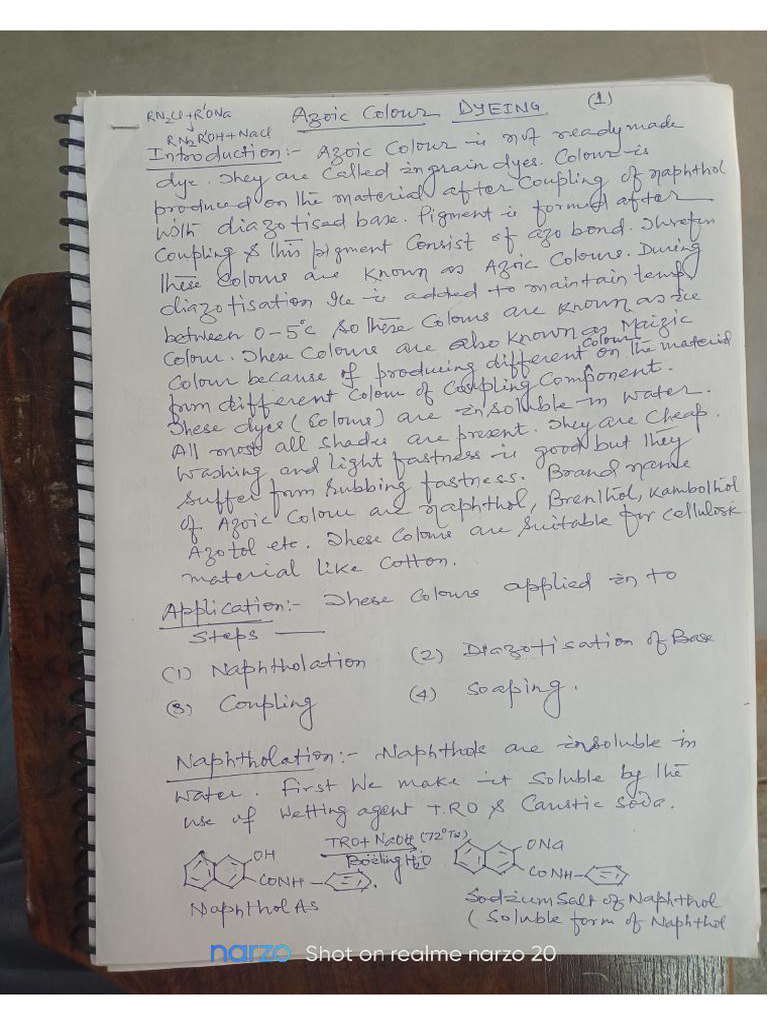 RN2Cl+R'ONa
↓
RN2R'OH+NaCl
Azoic Colour DYEING (1)
Introduction:- Azoic Colour is not readymade
dye. They are called ingrain dyes. Colour is
produced on the material after Coupling of naphthol
with diazotised base. Pigment is formed after
Coupling & this pigment Consist of azo bond. Threfore
these Colours are known as Azoic Colours. During
diazotisation Ice is added to maintain temp
between 0-5°C so these Colours are known as ice
Colour. These Colours are also known as Maizic
Colour because of producing different Colours on the material
from different Colour of Coupling Component.
These dyes (Colours) are insoluble in water.
All most all shades are present. They are Cheap.
Washing and light fastness is good but they
Suffer from Rubbing fastness. Brand name
of Azoic Colour are naphthol, Brenthol, Kambothol
Azotol etc. These Colours are Suitable for cellulosic
material like Cotton.
Application:- These Colours applied in to
Steps —
(1) Naphtholation (2) Diazotisation of Base
(3) Coupling (4) Soaping.
Naphtholation:- Naphthols are insoluble in
water. First we make it soluble by the
use of Wetting agent T.R.O & Caustic soda.
OH
CONH-
Naphthol As
TRO+NaOH (72°Tw)
Boiling H2O
ONa
CONH-
Sodium Salt of Naphthol
(Soluble form of Naphthol
narzo Shot on realme narzo 20